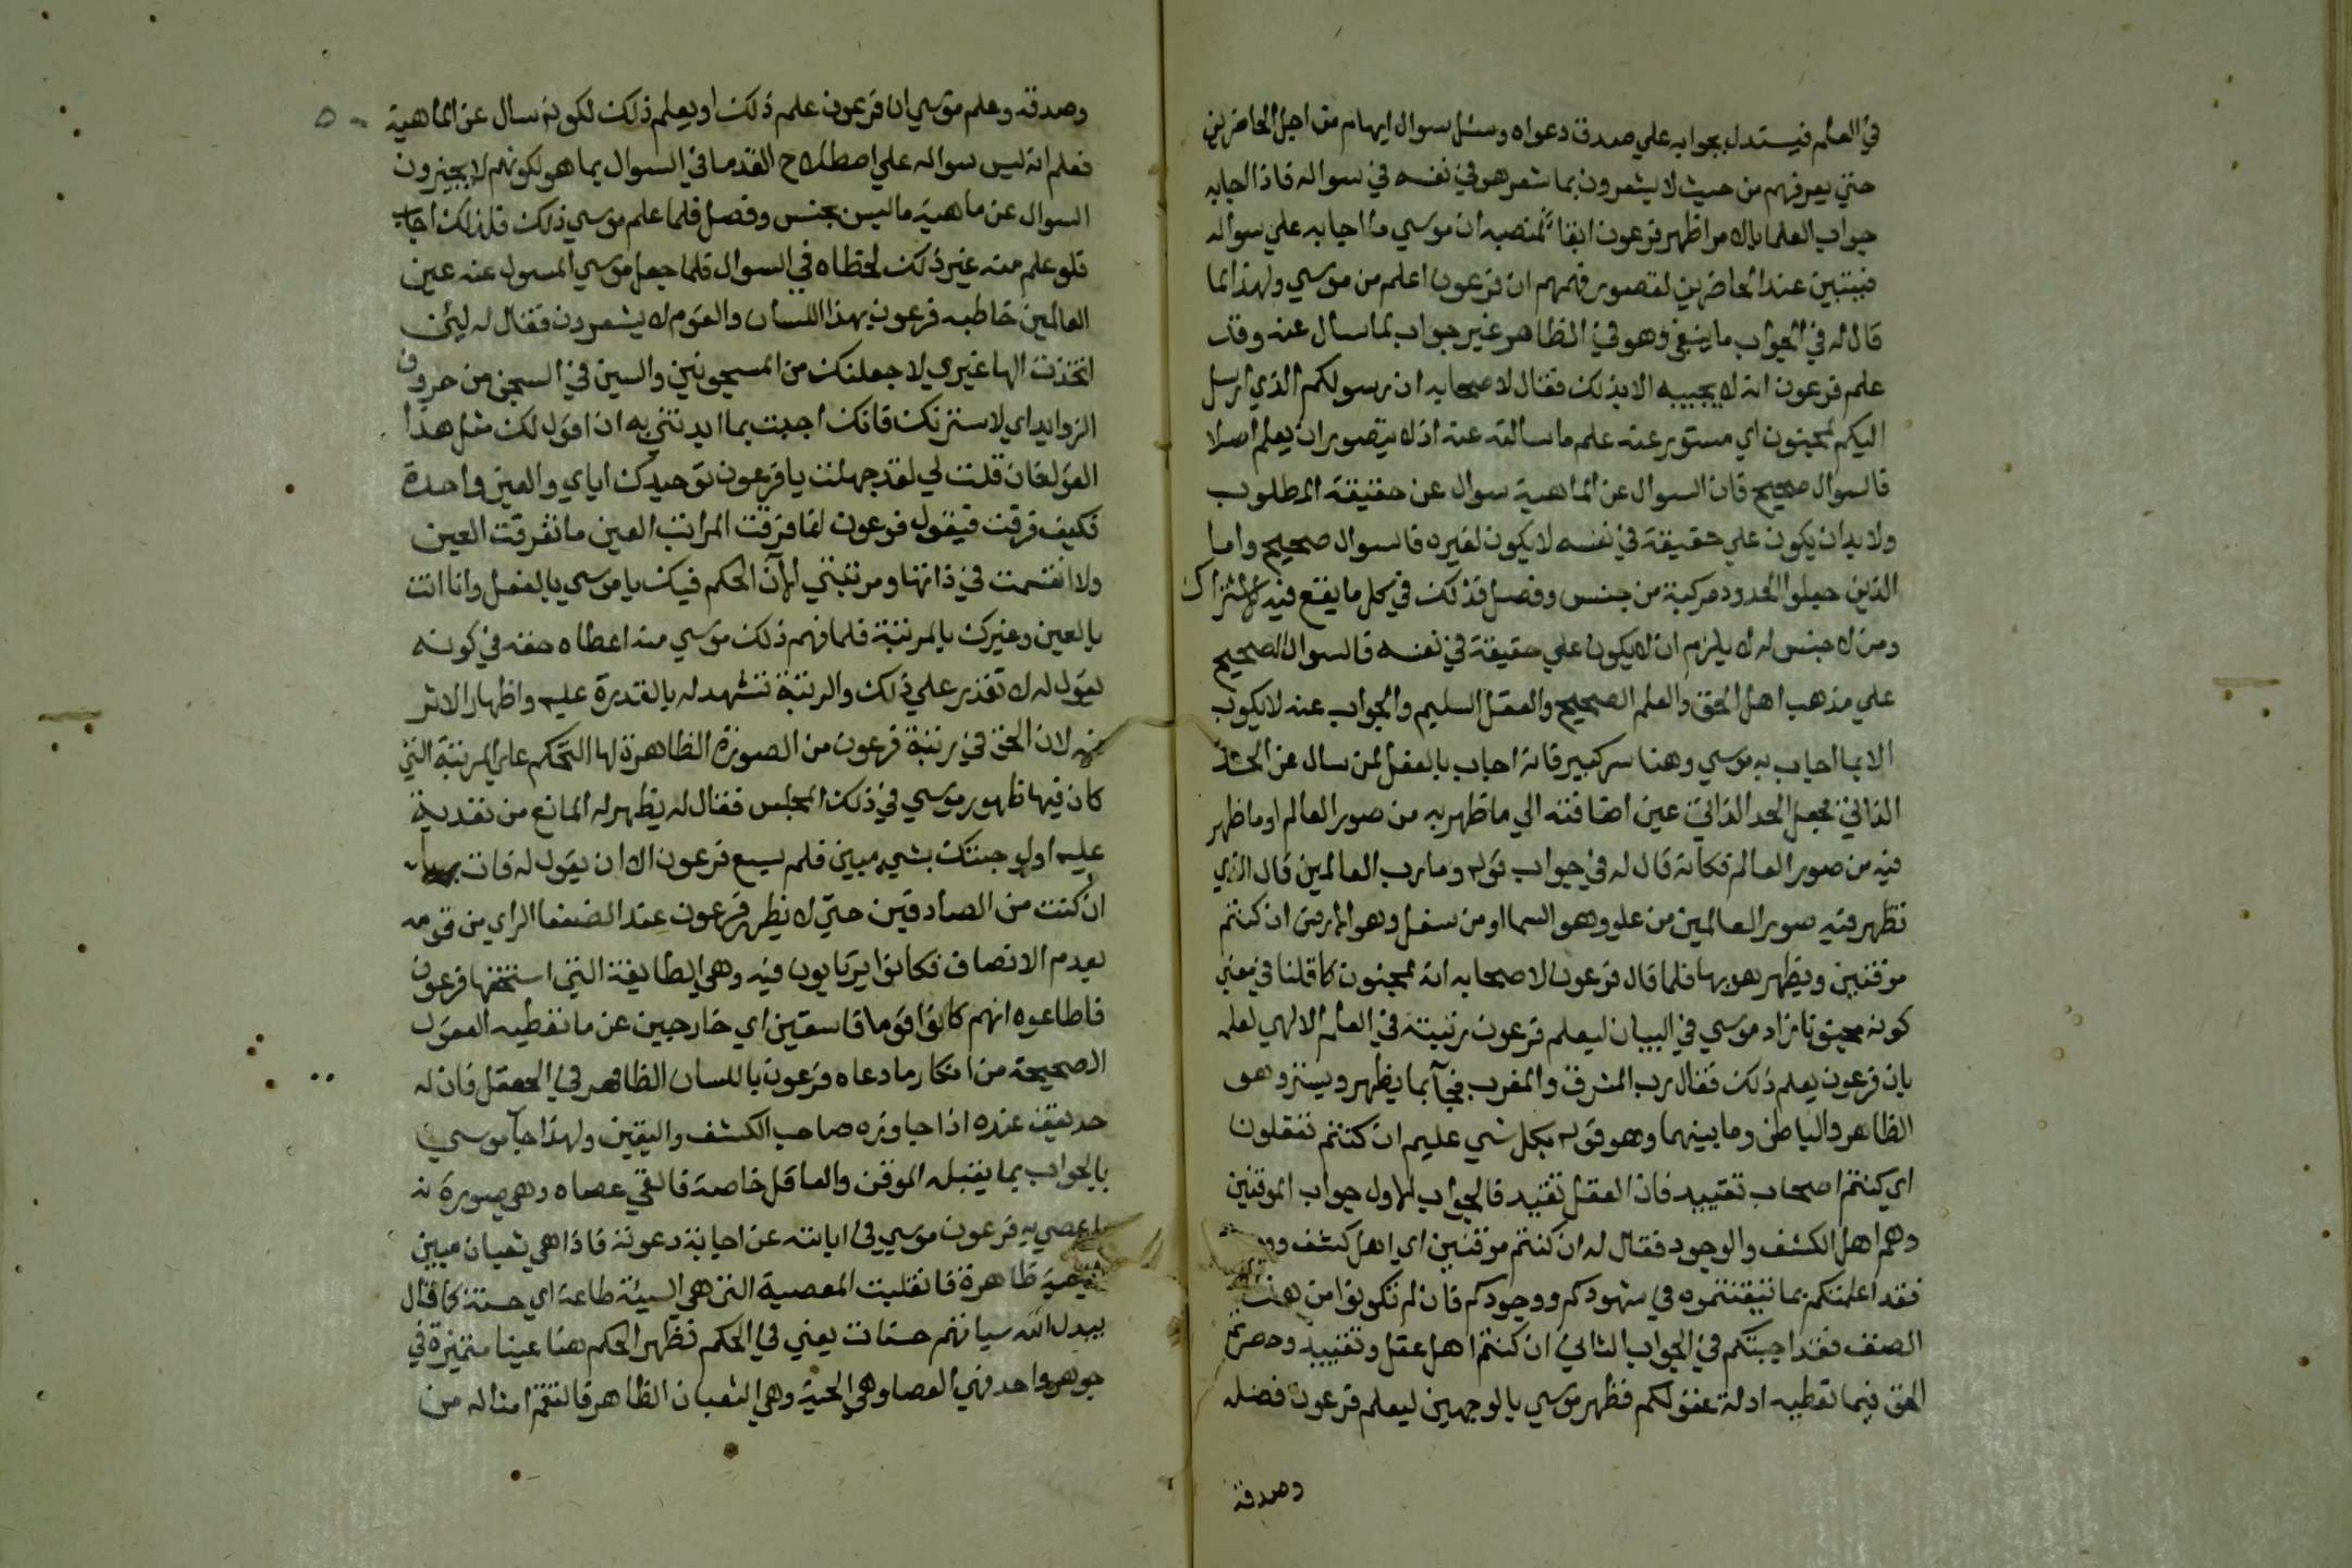 في العلم فيستدل بجوابه علي صدق دعواه وسئل سوال ايهام من اجل الحاضرين
حتي يعرفهم من حيث لا يشعرون بما شعر هو في نفسه في سواله فاذا اجابه
جواب العلما بالامر اظهر فرعون ابقا لمنصبه ان موسي ما اجابه علي سواله
فيتبين عند الحاضرين لقصور فهمهم ان فرعون اعلم من موسي ولهذا لما
قال له في الجواب ما ينبغي وهو في الظاهر غير جواب لما سأل عنه وقد
علم فرعون انه لا يجيبه الا بذلك فقال لاصحابه ان رسولكم الذي ارسل
اليكم لمجنون اي مستور عنه علم ما سالته عنه اذ لا يتصور ان يعلم اصلا
فالسوال صحيح فان السوال عن الماهية سوال عن حقيقة المطلوب
ولا بد ان يكون علي حقيقة في نفسه لا يكون لغيره فالسوال صحيح واما
الذين جعلوا الحدود مركبة من جنس وفصل فذلك في كل ما يقع فيه الاشتراك
ومن لا جنس له لا يلزم ان لا يكون علي حقيقة في نفسه فالسوال الصحيح
علي مذهب اهل الحق والعلم الصحيح والعقل السليم والجواب عنه لا يكون
الا بما اجاب به موسي وهنا سر كبير فانه اجاب بالفعل لمن سال عن الحد
الذاتي فجعل الحد الذاتي عين اضافته الي ما ظهر به من صور العالم او ما ظهر
فيه من صور العالم فكانه قال له في جواب قوله وما رب العالمين قال الذي
تظهر فيه صور العالمين من علو وهو السما او من سفل وهو الارض ان كنتم
موقنين ويظهر هو بها فلما قال فرعون لاصحابه انه لمجنون كما قلنا في معني
كونه مجنونا زاد موسي في البيان ليعلم فرعون رتبته في العلم الالهي لعلمه
بان فرعون يعلم ذلك فقال رب المشرق والمغرب فجآ بما يظهر ويستر وهو
الظاهر والباطن وما بينهما وهو قوله بكل شي عليم ان كنتم تعقلون
اي كنتم اصحاب تقييد فان العقل تقيد فالجواب الاول جواب الموقنين
وهم اهل الكشف والوجود فقال له ان كنتم موقنين اي اهل كشف
فقد اعلمتكم بما تيقنتموه في شهودكم ووجودكم فان لم تكونوا من هذا
الصنف فقد اجبتكم في الجواب الثاني ان كنتم اهل عقل وتقييد وحصرتم
الحق فيما تعطيه ادلة عقولكم فظهر موسي بالوجهين ليعلم فرعون فضله
وصدقه
وصدقه وعلم موسي ان فرعون علم ذلك او يعلم ذلك لكونه سال عن الماهية
فعلم انه ليس سواله علي اصطلاح القدما في السوال بما هو لكونهم لا يجيزون
السوال عن ماهية ما ليس بجنس وفصل فلما علم موسي ذلك فلذلك اجاب
فلو علم منه غير ذلك لخطاه في السوال فلما جعل موسي المسول عنه عين
العالمين خاطبه فرعون بهذا اللسان والقوم لا يشعرون فقال له لئن
اتخذت الها غيري لاجعلنك من المسجونين والسين في السجن من حروف
الزوايد اي لاسترنك فانك اجبت بما ايدتني به ان اقول لك مثل هذا
القول فان قلت لي لقد جهلت يا فرعون توحيدك اياي والعين واحدة
فكيف فرقت فيقول فرعون انما فرقت المراتب العين ما تفرقت العين
ولا انقسمت في ذاتها ومرتبتي الآن الحكم فيك يا موسي بالفعل وانا انت
بالعين وغيرك بالمرتبة فلما فهم ذلك موسي منه اعطاه حقه في كونه
يقول له لا تقدر علي ذلك والرتبة تشهد له بالقدرة عليه واظهار الاثر
فيه لان الحق في رتبة فرعون من الصورة الظاهرة لها التحكم علي المرتبة التي
كان فيها ظهور موسي في ذلك المجلس فقال له يظهر له المانع من تعديه
عليه اولو جئتك بشي مبين فلم يسع فرعون الا ان يقول له فات به
ان كنت من الصادقين حتي لا يظهر فرعون عند الضعفا الراي من قومه
بعدم الانصاف فكانوا يرتابون فيه وهي الطايفة التي استخفها فرعون
فاطاعوه انهم كانوا قوما فاسقين اي خارجين عن ما تعطيه العقول
الصحيحة من انكار ما دعاه فرعون باللسان الظاهر في العقل فان له
حد يقف عنده اذا جاوزه صاحب الكشف واليقين ولهذا جآ موسي
بالجواب بما يقبله الموقن والعاقل خاصة فالقي عصاه وهي صورة
ما عصي به فرعون موسي في ابايته عن اجابة دعوته فاذا هي ثعبان مبين
ظاهرة فانقلبت المعصية التي هي السيئة طاعة اي حسنة كما قال
يبدل الله سياتهم حسنات يعني في الحكم فظهر الحكم هنا عينا متميزة في
جوهر واحد فهي العصا وهي الحية وهي الثعبان الظاهر فالتقم امثاله من